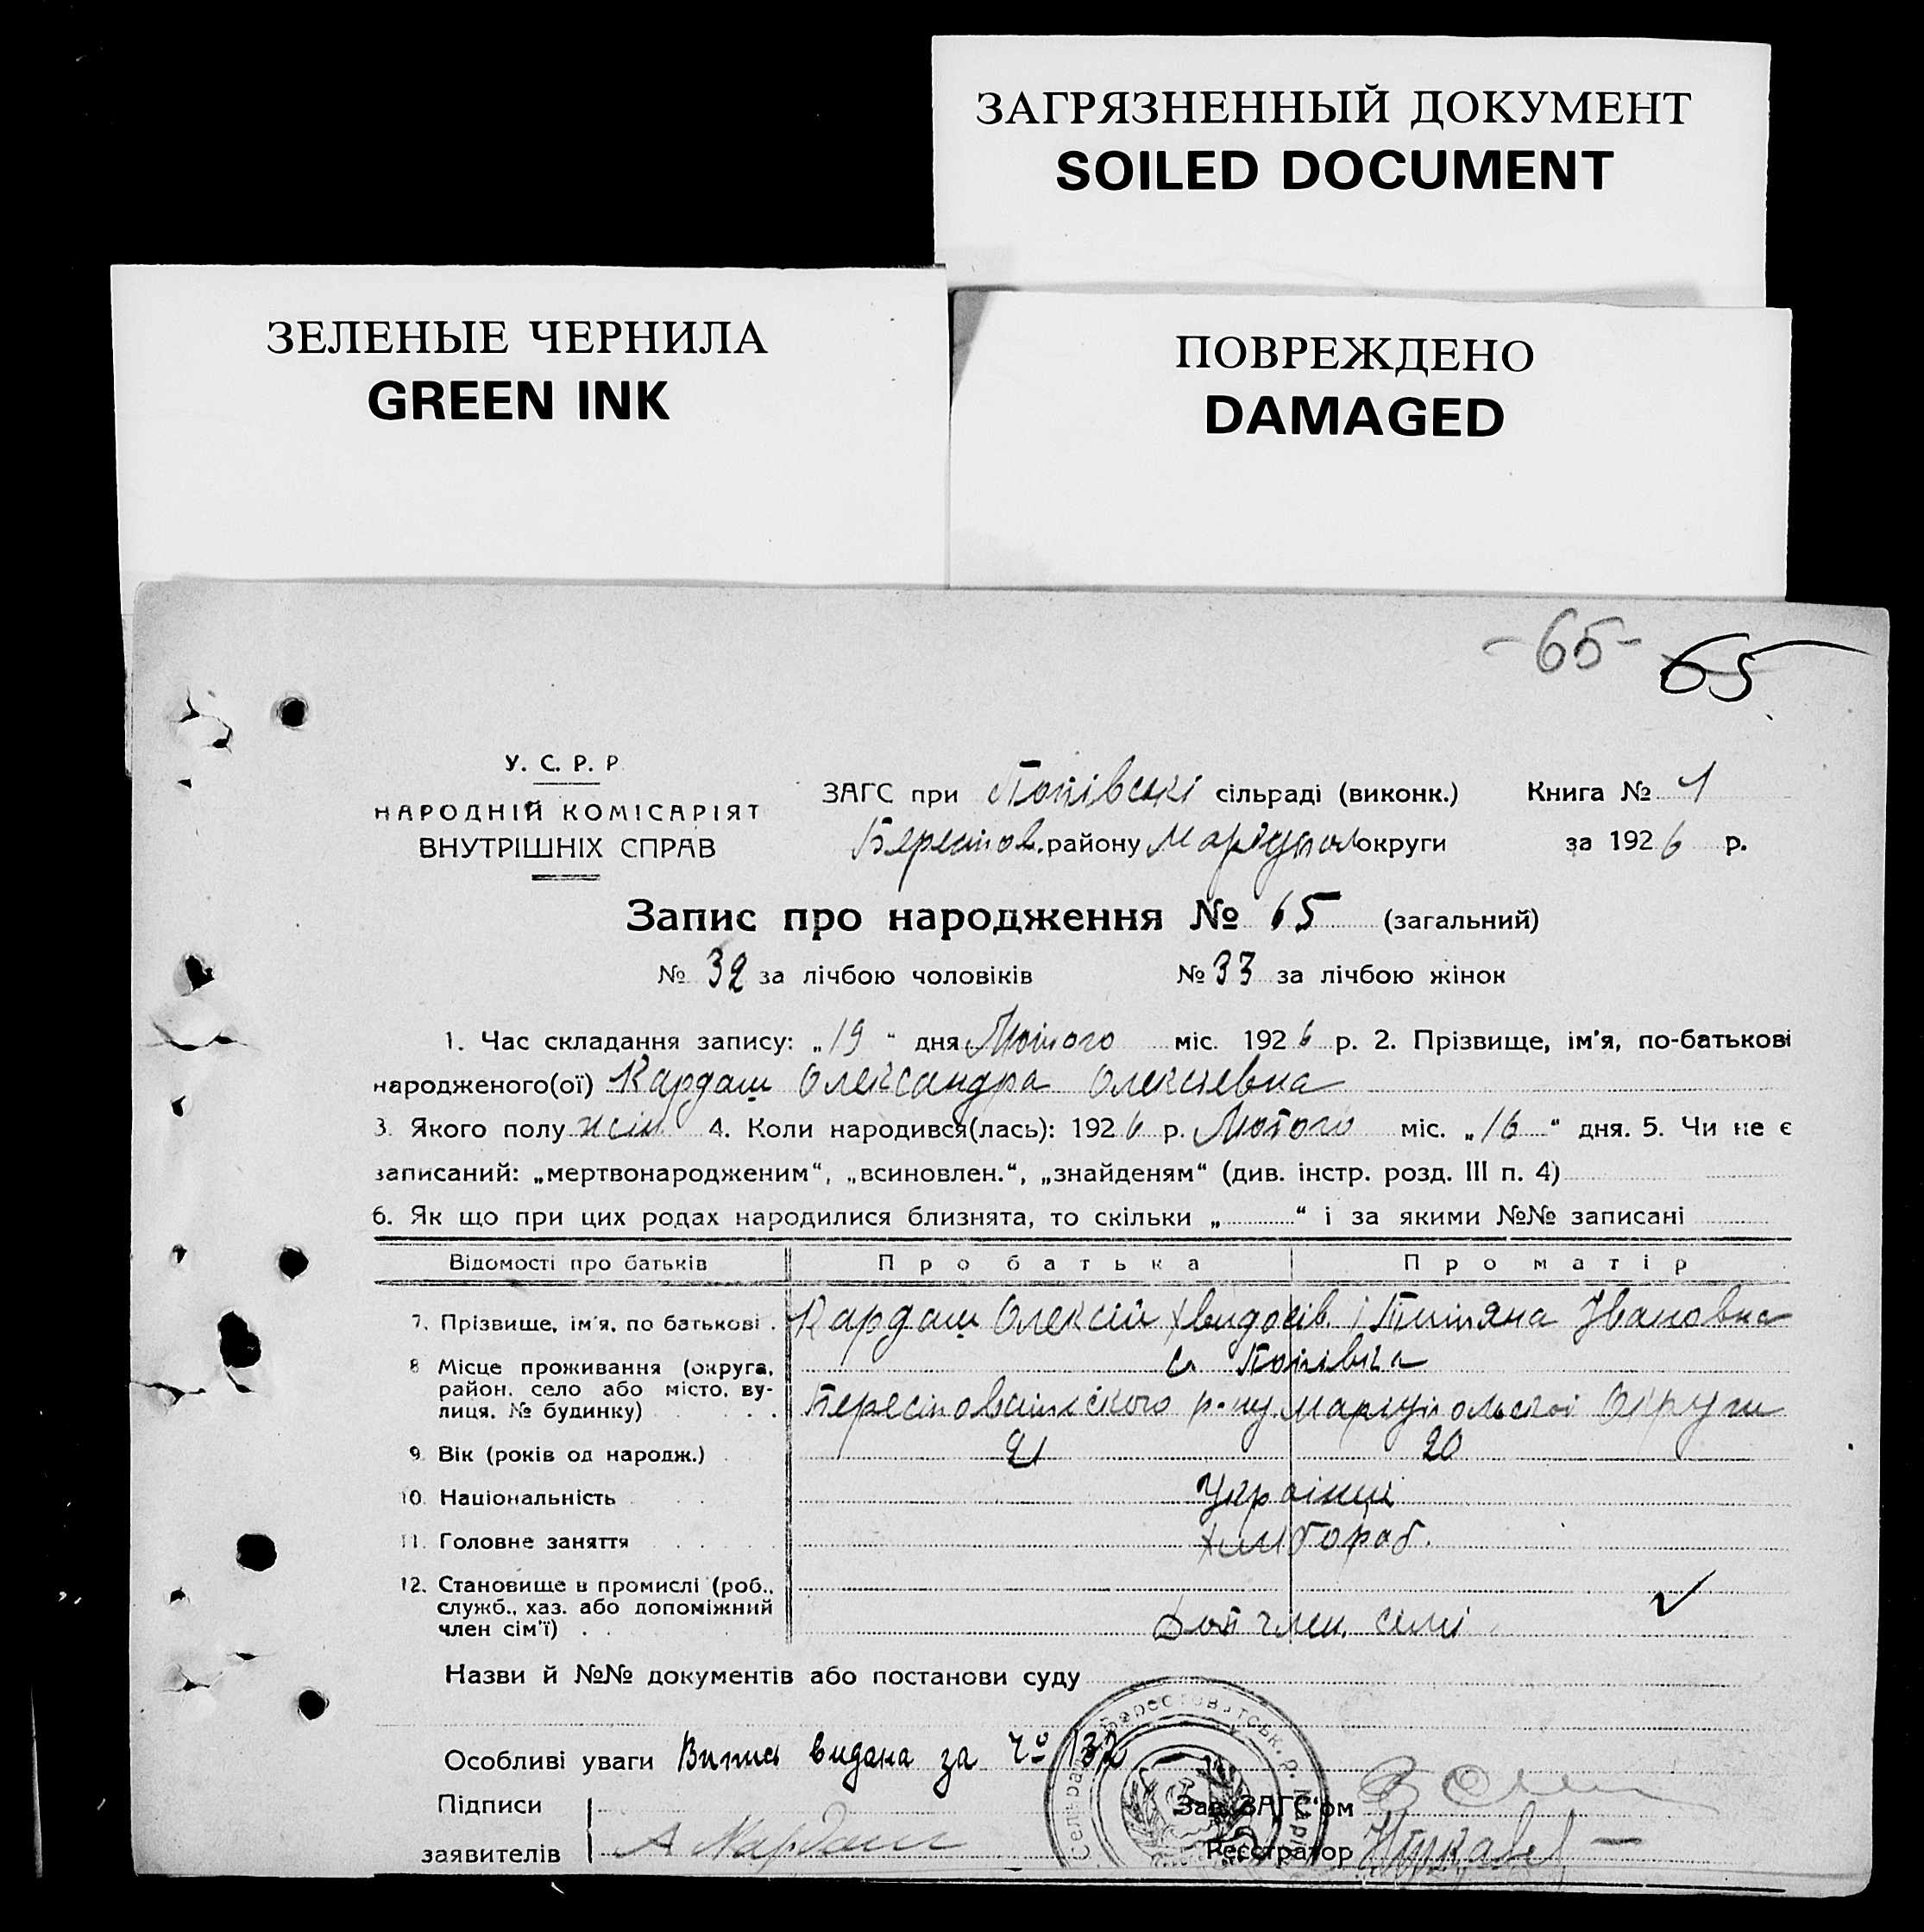 ЗАГРЯЗНЕННЫЙ ДОКУМЕНТ
SOILED DOCUMENT
ЗЕЛЕНЫЕ ЧЕРНИЛА
GREEN INK
ПОВРЕЖДЕНО
DAMAGED
-65- 65
У. С. Р. Р
НАРОДНІЙ КОМІСАРІЯТ
ВНУТРІШНІХ СПРАВ
ЗАГС при Попівські сільраді (виконк.) Книга № 1
Берестов. району Маріупол округи за 1926 р.
Запис про народження № 65 (загальний)
№ 32 за лічбою чоловіків № 33 за лічбою жінок
1. Час складання запису: „19" дня Лютого міс. 1926 р. 2. Прізвище, ім'я, по-батькові
народженого(ої) Кардаш Олександра Олексіевна
3. Якого полу жін 4. Коли народився(лась): 1926 р. Лютого міс. „16" дня. 5. Чи не є
записаний: „мертвонародженим“, „всиновлен.“, „знайденям“ (див. інстр. розд. III п. 4)
6. Як що при цих родах народилися близнята, то скільки „ “ і за якими №№ записані
Відомості про батьків Про батька Про матір
7. Прізвище, ім'я, по батькові . Кардаш Олексій Хведосів. Титяна Івановна
8 Місце проживання (округа, район, село або місто, вулиця, № будинку) с. Попівка
Берестоватського р-ну Маріупольскоі Округи
9. Вік (років од народж.) 21 20
10. Національність Украінці
11. Головне заняття хлібороб.
12. Становище в промислі (роб.,
служб., хаз. або допоміжний
член сім'ї) . . Доп член. сімі
Назви й №№ документів або постанови суду
Особливі уваги Випись видана за 132
Підписи
заявителів А Кардаш
Зав. ЗАГС'ом
Реєстратор